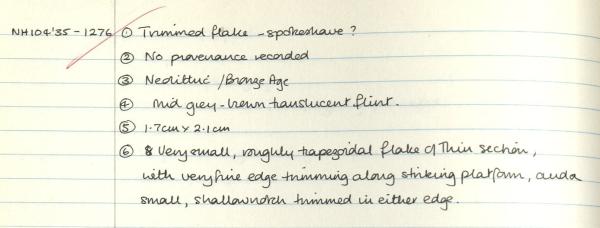 NH104'35-1276 ① Trimmed flake - spokeshave?
② No provenance recorded
③ Neolithic / Bronze Age
④ Mid grey-brown translucent flint.
⑤ 1.7cm x 2.1cm
⑥ Very small, roughly trapezoidal flake of thin section,
with very fine edge trimming along striking platform, and a
small, shallow notch trimmed in either edge.